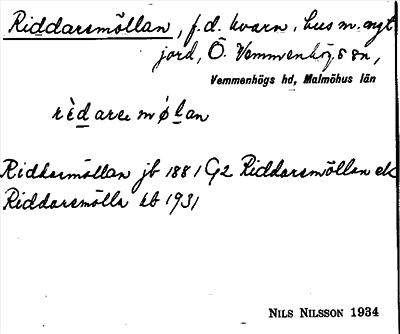 Riddarsmöllan, f.d. kvarn, hus m. ngt
jord, Ö. Vemmenhögs sn,
Vemmenhögs hd, Malmöhus län
rèdarsmølan
Riddarsmöllan jb 1881 G2 Riddarsmöllan ek
Riddarsmölla kb 1931
NILS NILSSON 1934